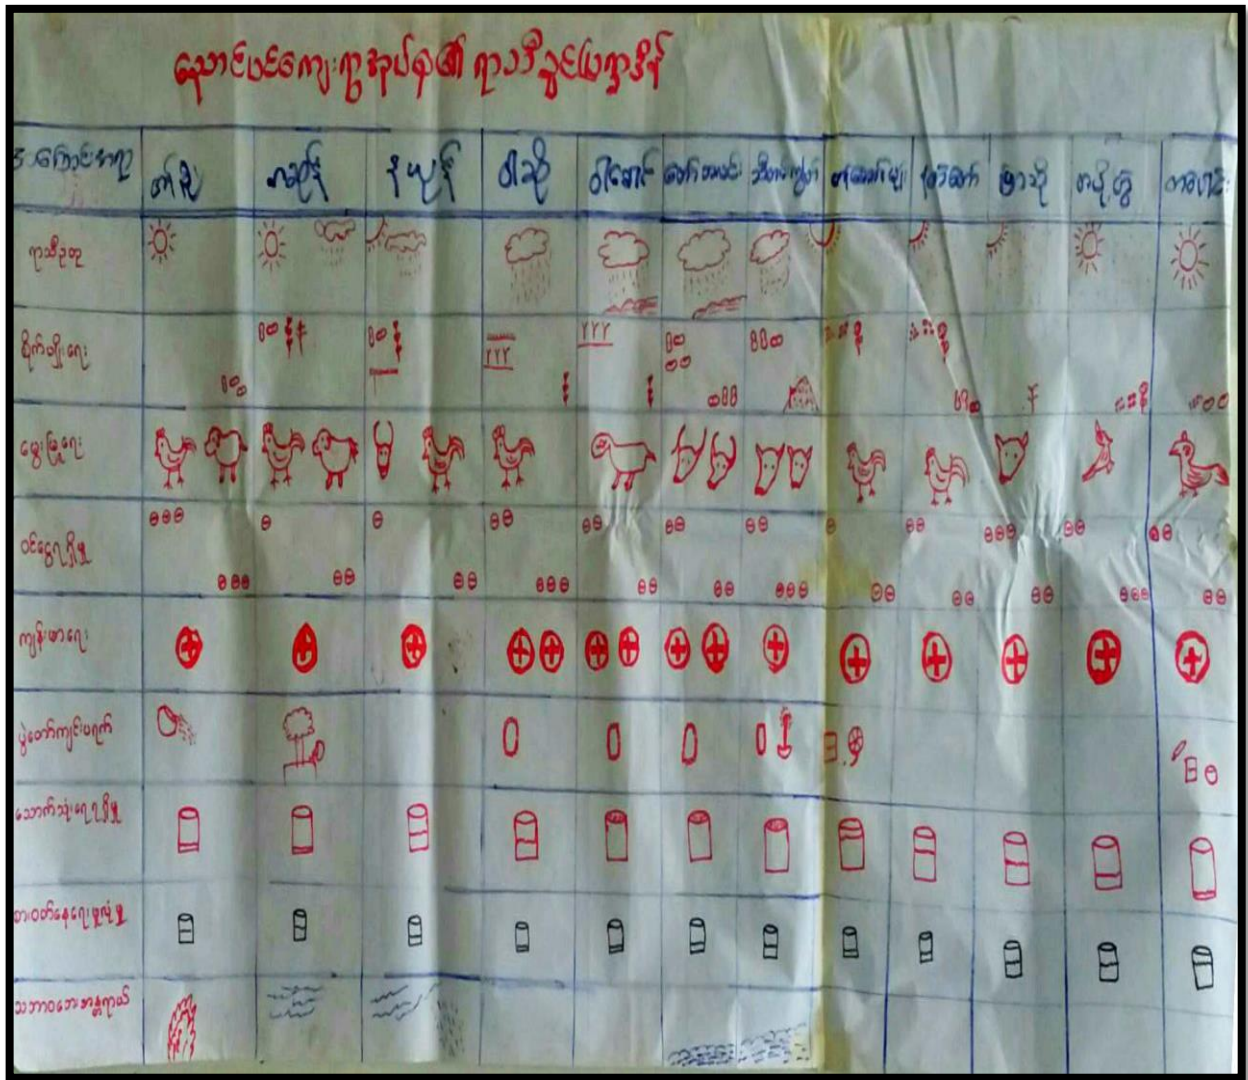 ညောင်ပင်ကျေးရွာအုပ်စု၏ ရာသီခွင်ပြက္ခဒိန်
အကြောင်းအရာ တန်ခူး ကဆုန် နယုန် ဝါဆို ဝါခေါင် တော်သလင်း သီတင်းကျွတ် တန်ဆောင်မုန်း နတ်တော် ပြာသို တပို့တွဲ တပေါင်း
ရာသီဥတု
စိုက်ပျိုးရေး
မွေးမြူရေး
ဝင်ငွေရရှိမှု
ကျန်းမာရေး
ပွဲတော်ကျင်းပရက်
သောက်သုံးရေရရှိမှု
စားဝတ်နေရေးဖူလုံမှု
သဘာဝဘေးအန္တရာယ်